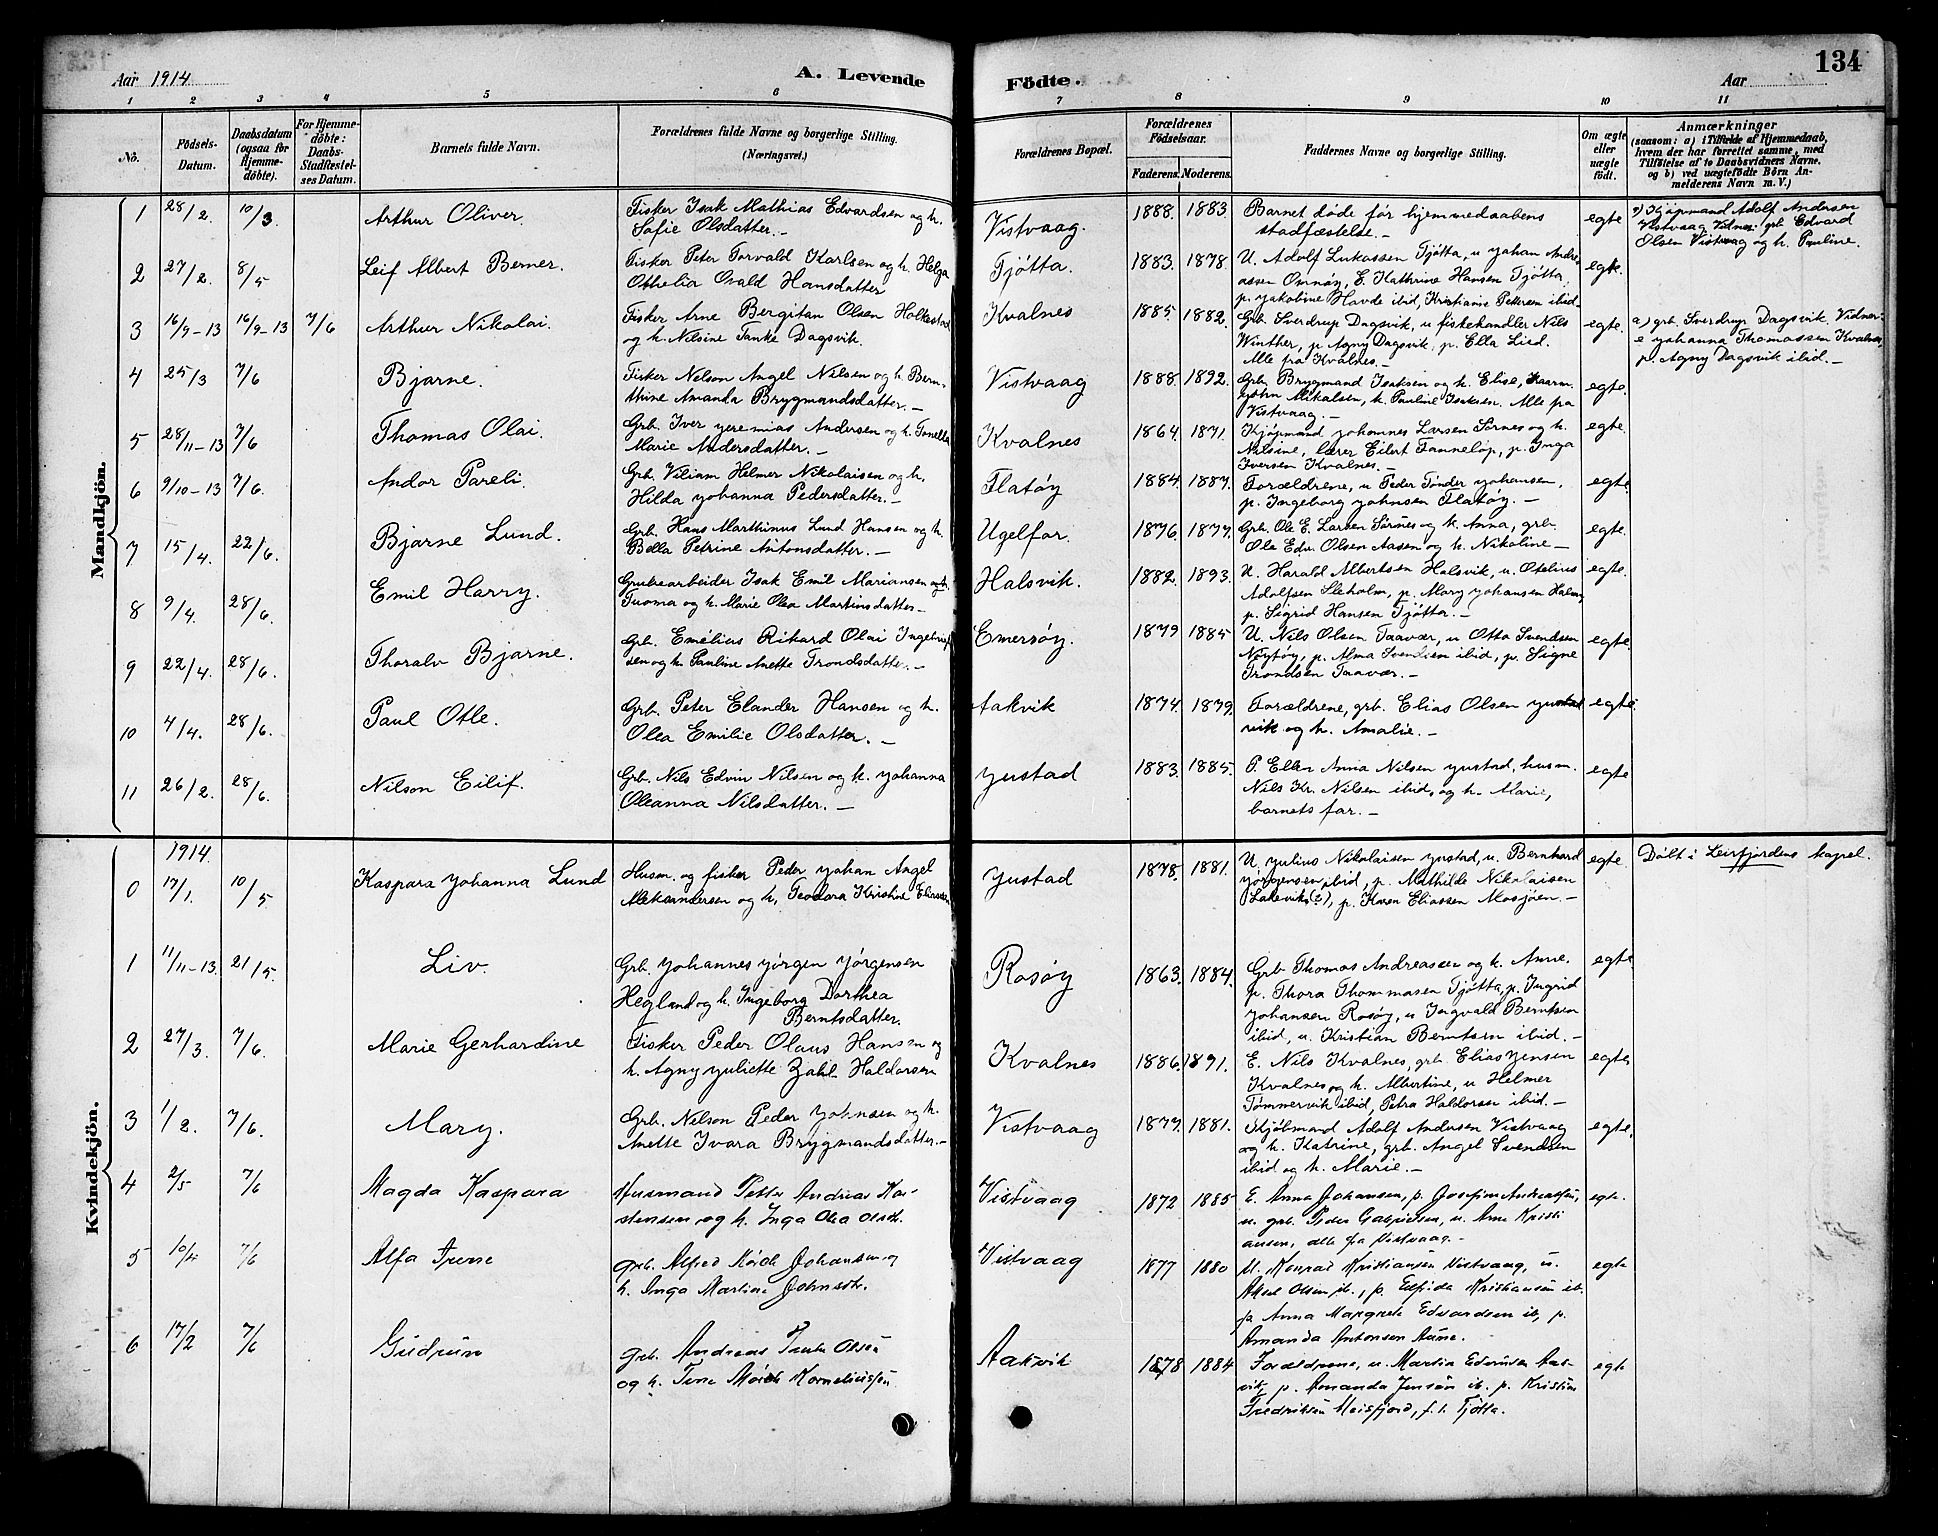 Aar 1914
A. Levende
Födte.
Aar
134
1 2 3 4 5 6 7 8 9 10 11
No.
Födsels-
Datum.
Daabsdatum
(ogsaa for
Hjemme-
döbte).
For Hjemme-
döbte:
Daabs-
Stadfæstel-
ses Datum.
Barnets fulde Navn.
Forældrenes fulde Navne og borgerlige Stilling.
(Næringsvei.)
Forældrenes Bopæl.
Forældrenes
Födselsaar.
Faderens. Moderens.
Faddernes Navne og borgerlige Stilling.
Om ægte
eller
uægte
födt.
Anmærkninger
(saasom: a) i Tilfælde af Hjemmedaab,
hvem der har forrettet samme, med
Tilföielse af to Daabsvidners Navne.
og b) ved uægtefödte Börn An-
melderens Navn m. V.)
Mandkjön.
1 28/2. 10/3. Arthur Oliver.
Fisker Isak Mathias Edvardsen og h.
Sofie Olsdatter. –
Vistvaag. 1888. 1883.
Barnet døde før hjemmedaabens
stadfæstelse. –
egte
Kjøpmand Adolf Andersen
Vistvaag Vidner: grb. Edvard
Olsen Vistvaag og h. Pauline.
2 27/2. 8/5 Leif Albert Berner.
Fisker Peter Torvald Karlsen og h. Helga
Othelia Osvald Hansdatter
Tjötta. 1883. 1878.
U. Adolf Lukassen Tjötta, u Johan Andre-
assen Omnöy, E. Kathrine Hansen Tjötta,
p. Jakobine Havde ibid, Kristianis Pettersen ibid.
egte.
3 16/9–13 16/9–13 7/6 Arthur Nikolai.
Fisker Arne Bergitan Olsen Holkestad
og h. Nilsine Tanke Dagsvik.
Kvalnes 1885. 1882.
Grb. Sverdrup Dagsvik, u fiskehandler Nils
Winther, p. Agny Dagsvik, p. Ella Lied.
Alle fra Kvalnes. –
egte.
a) grb. Sverdrup Dagsvik. Vidner:
e Johanna Thomassen Kvalnes,
p. Agny Dagsvik ibid. –
4 25/3 7/6 Bjarne.
Fisker Nelson Angel Nilsen og h. Bern-
thine Amanda Brygmandsdatter. –
Vistvaag 1888. 1892.
Grb. Brygmand Isaksen og h. Elise, kaarm.
John Mikalsen, h. Pauline Isaksen. Alle fra
Vistvaag. –
egte.
5 28/11–13 7/6 Thomas Olai.
Grb. Iver Jeremias Andersen og h. Tonella
Marie Andersdatter. –
Kvalnes 1864. 1871.
Kjöpmand Johannes Larsen Sörnes og h.
Nilsine, lærer Eilert Tanneløp, p. Inga
Iversen Kvalnes. –
egte.
6 9/10–13 7/6. Andor Pareli.
Grb. Viliam Helmer Nikolaisen og h.
Hilda Johanna Pedersdatter. –
Flatöy 1884. 1887.
Forældrene, u Peder Tinder Johansen,
p. Ingeborg Johnsen Flatöy. –
egte.
7 15/4. 22/6. Bjarne Lund.
Grb. Hans Marthinus Lund Hansen og h.
Bella Petrine Antonsdatter. –
Ugelfar. 1876. 1877.
Grb. Ole E. Larsen Sörnes og h. Anna, grb.
Ole Edv. Olsen Aasen og h. Nikoline –
egte.
8 9/4. 28/6. Emil Harry.
Grubearbeider Isak Emil Mariansen og h.
Tuoma og h. Marie Olea Martinsdatter –
Halsvik. 1882. 1893.
U. Harald Albertsen Halsvik, u. Otelius
Adolfsen Sleholm, p. Mary Johansen Halm,
p. Sigrid Hansen Tjötta. –
egte.
9 22/4. 28/6. Thoralv Bjarne.
Grb. Emélius Rikard Olai Ingebrigt-
sen og h. Pauline Anette Trondsdatter. –
Emersöy. 1879 1885
U. Nils Olsen Taavær, u Otto Svendsen
Nöytöy, p. Alma Svendsen ibid, p. Signe
Trondsen Taavær. –
egte.
10 4/4. 28/6. Paul Otle.
Grb. Peter Elander Hansen og h.
Olea Emilie Olsdatter. –
Aakvik 1874. 1879.
Forældrene, grb. Elias Olsen Justad
vik og h. Amalie. –
egte.
11 26/2. 28/6. Nilson Eilif.
Grb. Nils Edvin Nilsen og h. Johanna
Oleanna Nilsdatter. –
Justad 1883. 1885.
P. Ellen Anna Nilsen Justad, husm.
Nils Kr. Nilsen ibid, og h. Marie,
barnets far. –
egte
Kvindekjön.
1914.
0 17/1. 10/5 Kaspara Johanna Lund
Husm. og fisker Peder Johan Angel
Aleksandersen og h. Teodora Kristine Eliassen
Justad 1878. 1881.
U. Julius Nikolaisen Justad, u. Bernhard
Jörgensen ibid, p. Mathilde Nikolaisen
Lakevik (?), p. Karen Eliassen Mosjöen. –
egte.
Döbt i Leirfjordens kapel.
1 11/11–13. 21/5. Liv.
Grb. Johannes Jörgen Jörgensen
Hegland og h. Ingeborg Dorthea
Berntsdatter.
Rosöy 1863. 1884.
Grb Thomas Andreassen og h. Anne,
p. Thora Thommasen Tjötta, p. Ingrid
Johansen Rosöy, u Ingvald Berntsen
ibid, u. Kristian Berntsen ibid. –
egte.
2 27/3. 7/6. Marie Gerhardine
Fisker Peder Olaus Hansen og
h. Agny Juliette Zahl Haldorsen
Kvalnes 1886. 1891.
E. Nils Kvalnes, grb. Elias Jensen
Kvalnes og h. Albertine, u Helmer
Tömmervik ibid, Petra Haldorsen ibid. –
egte
3 1/2. 7/6. Mary.
Grb. Nilson Peder Johnsen og h.
Anette Ivara Brygmandsdatter. –
Vistvaag 1879. 1881.
Kjøbmand Adolf Andersen Vistvaag
og h. Katrine, grb. Angel Svendsen
ibid og h. Marie. –
egte,
4 2/5 7/6 Magda Kaspara
Husmand Petter Andreas Kar-
stensen og h. Inga Olea Olsdtr.
Vistvaag 1872 1885
E. Anna Johansen, p. Josefine Andreassen,
u. grb. Peder Gabrielsen, u. Arne Kristi
ansen, alle fra Vistvaag. –
egte.
5 10/4 7/6 Alfa Irene
grb. Alfred Mörch Johansen og
h. Inga Martine Johnsdtr.
Vistvaag 1877 1880
U. Konrad Kristiansen Vistvaag, u.
Aksel Olsen ib., p. Elfrida Kristiansen ib.
p Anna Margrete Edvardsen ib, p.
Amanda Antonsen Aune.
egte
6 17/2 7/6 Gudrun
grb. Andreas Olsen
og h. Tine Mörch Korneliussen
Aakvik 1878 1884
Forældrene, u. Martin Edvardsen Aas-
vik, p. Amanda Jensen ib. p. Kristine
Fredriksen Meisfjord, f. t. Tjötta.
egte